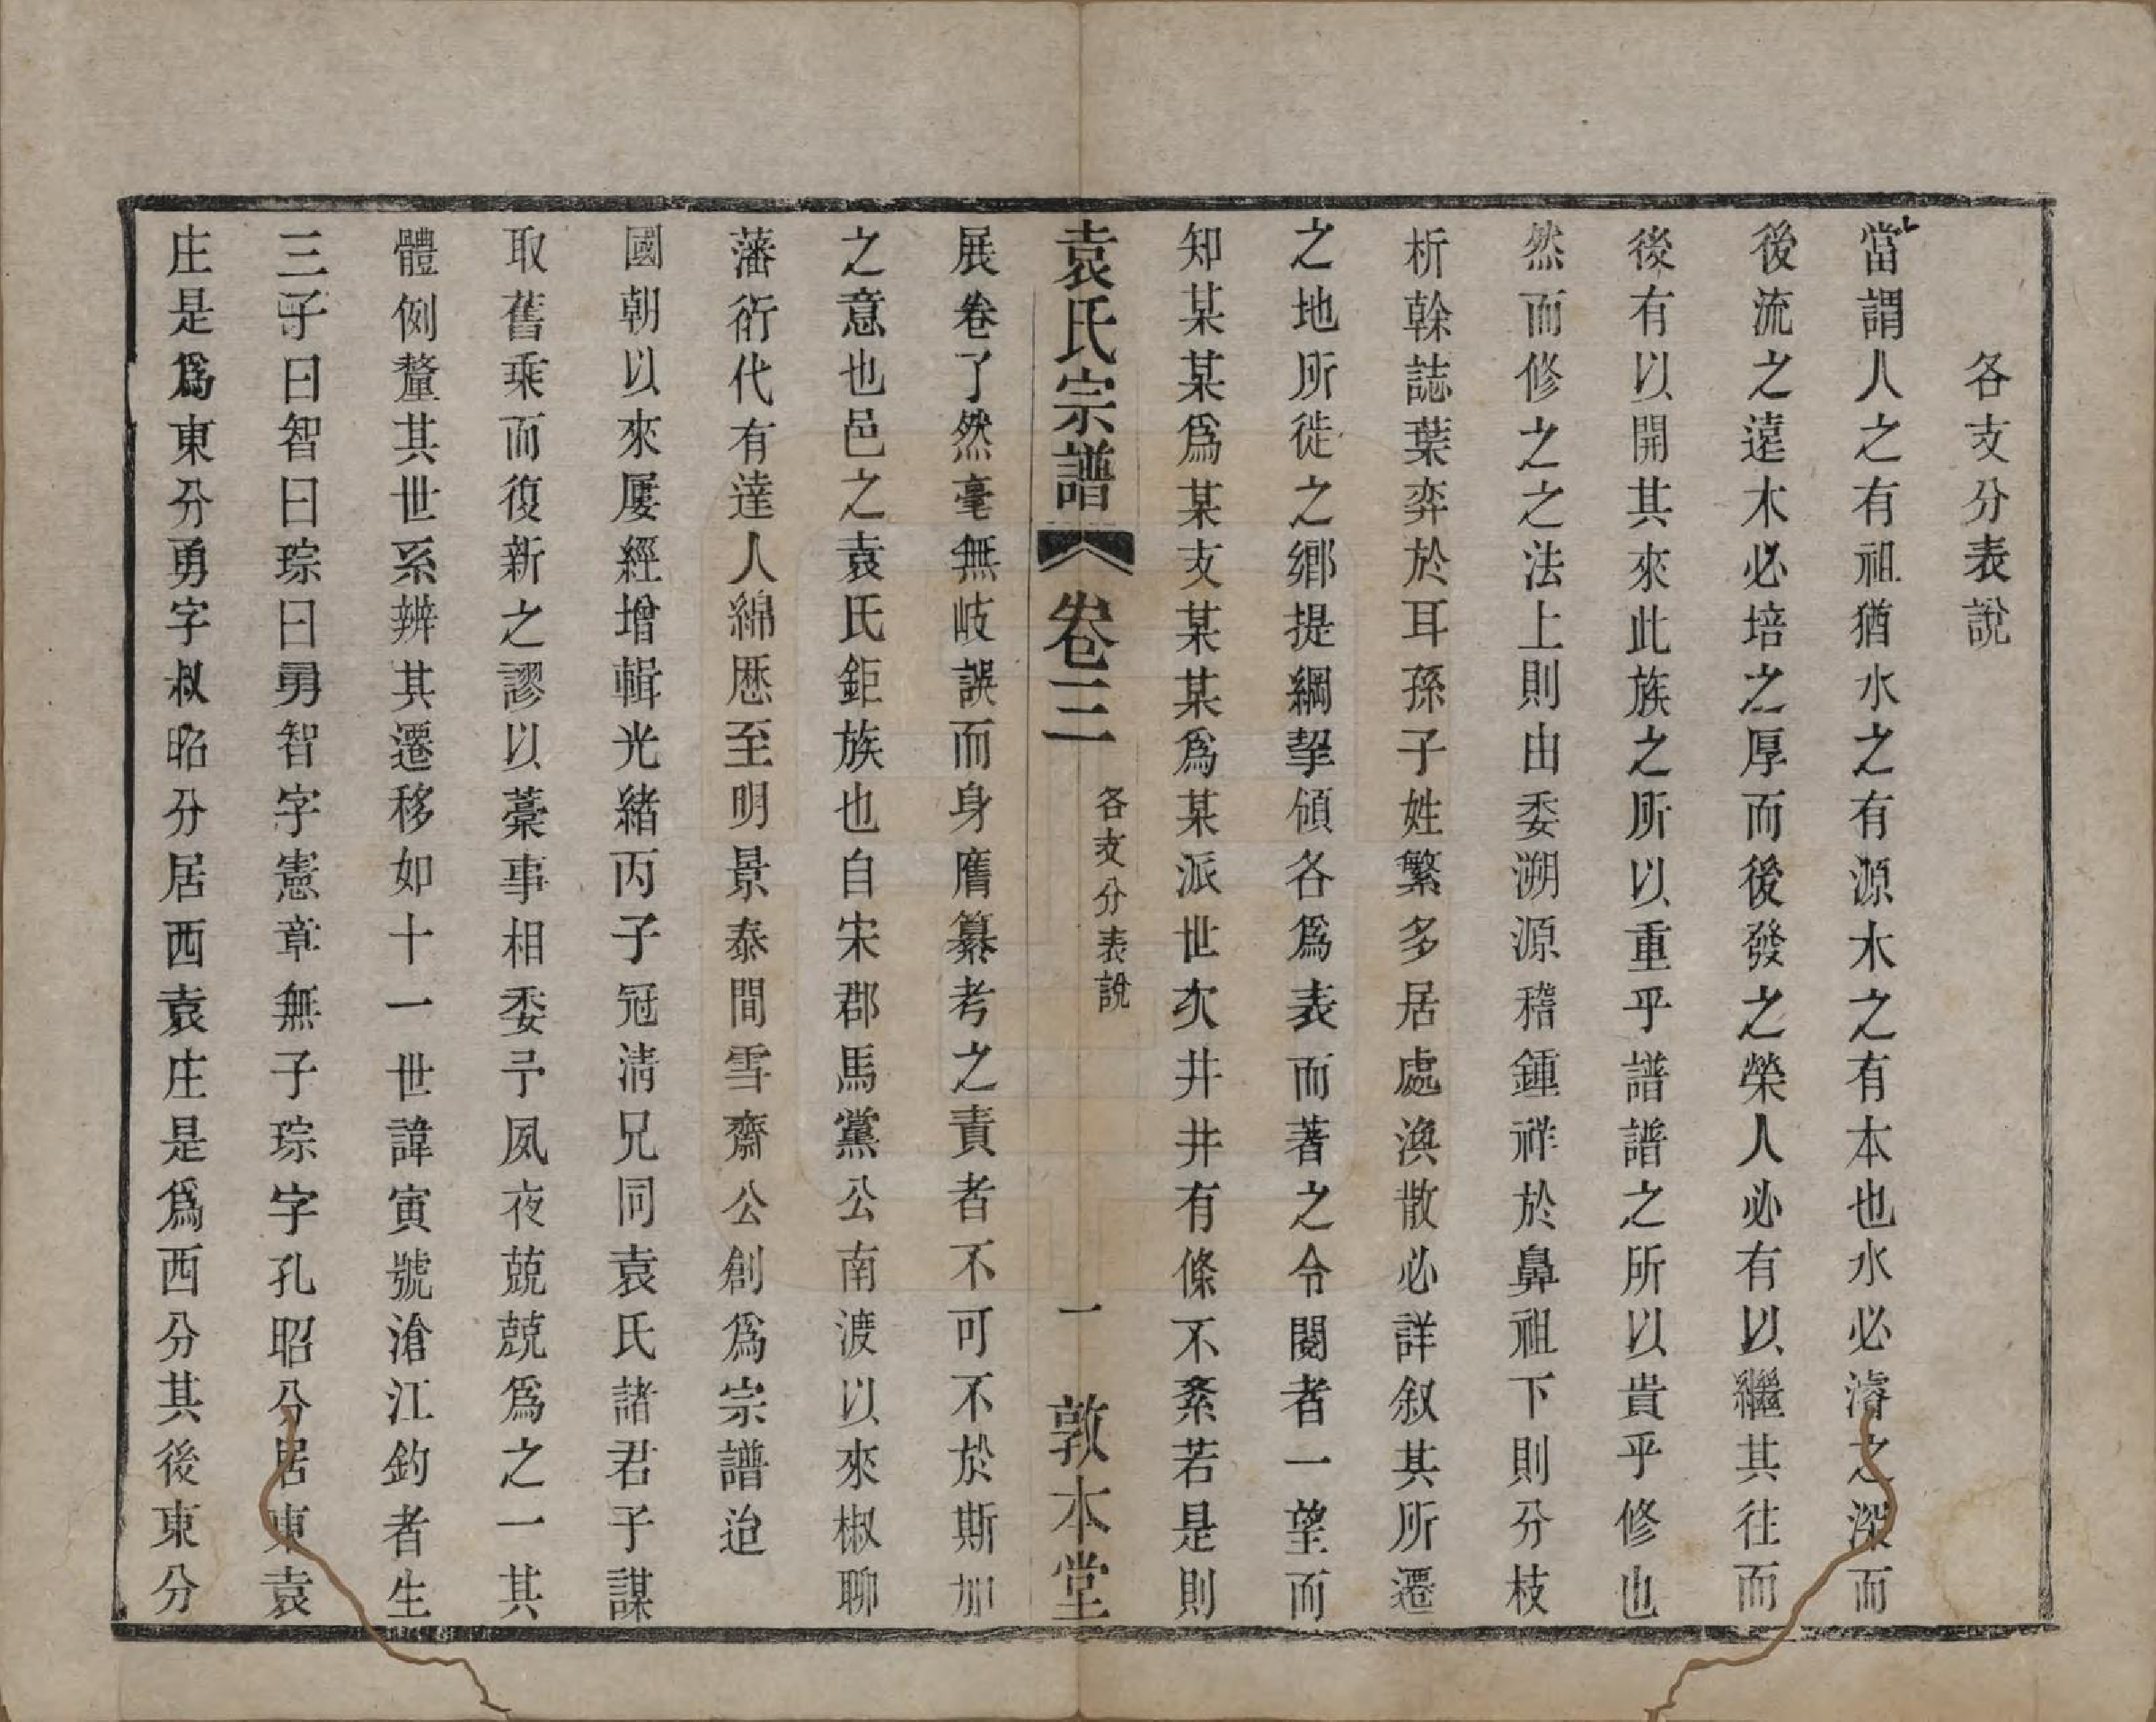 各支分表說
當謂人之有祖猶水之有源木之有本也水必濬之深而
後流之遠木必培之厚而後發之榮人必有以繼其往而
後有以開其來此族之所以重乎譜譜之所以貴乎修也
然而修之之法上則由委溯源稽鍾祥於鼻祖下則分枝
析榦誌葉弈於耳孫子姓繁多居處渙散必詳叙其所遷
之地所徙之鄉提綱挈領各爲表而著之令閱者一望而
知某某爲某支某某爲某派世次井井有條不紊若是則
袁氏宗譜 卷三 各支分表說 一 敦本堂
展卷了然毫無歧誤而身膺纂考之責者不可不於斯加
之意也邑之袁氏鉅族也自宋郡馬黨公南渡以來椒聊
藩衍代有達人綿歷至明景泰間雪齋公創爲宗譜迨
國朝以來屢經增輯光緒丙子冠淸兄同袁氏諸君子謀
取舊乘而復新之謬以藁事相委予夙夜兢兢爲之一其
體例釐其世系辨其遷移如十一世諱寅號滄江釣者生
三子曰智曰琮曰勇智字憲章無子琮字孔昭分居東袁
庄是爲東分勇字叔昭分居西袁庄是爲西分其後東分